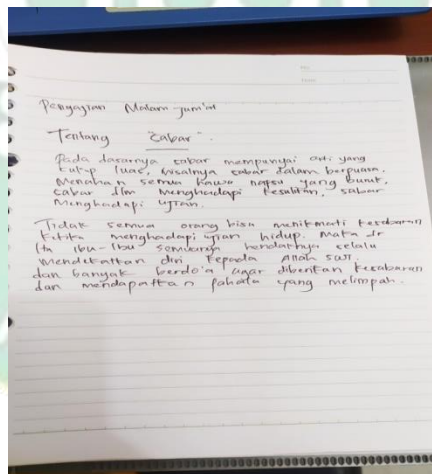 Pengajian Malam Jum'at
Tentang "Sabar".
Pada dasarnya sabar mempunyai arti yang
cukup luas, misalnya sabar dalam berpuasa.
Menahan semua hawa napsu yang buruk,
sabar dlm menghadapi kesulitan, sabar
menghadapi ujian.
Tidak semua orang bisa menikmati kesabaran
ketika menghadapi ujian hidup. Maka dr
itu Ibu-Ibu semuanya hendaknya selalu
mendekatkan diri kepada Allah swt.
dan banyak berdo'a agar diberikan kesabaran
dan mendapatkan pahala yang melimpah.